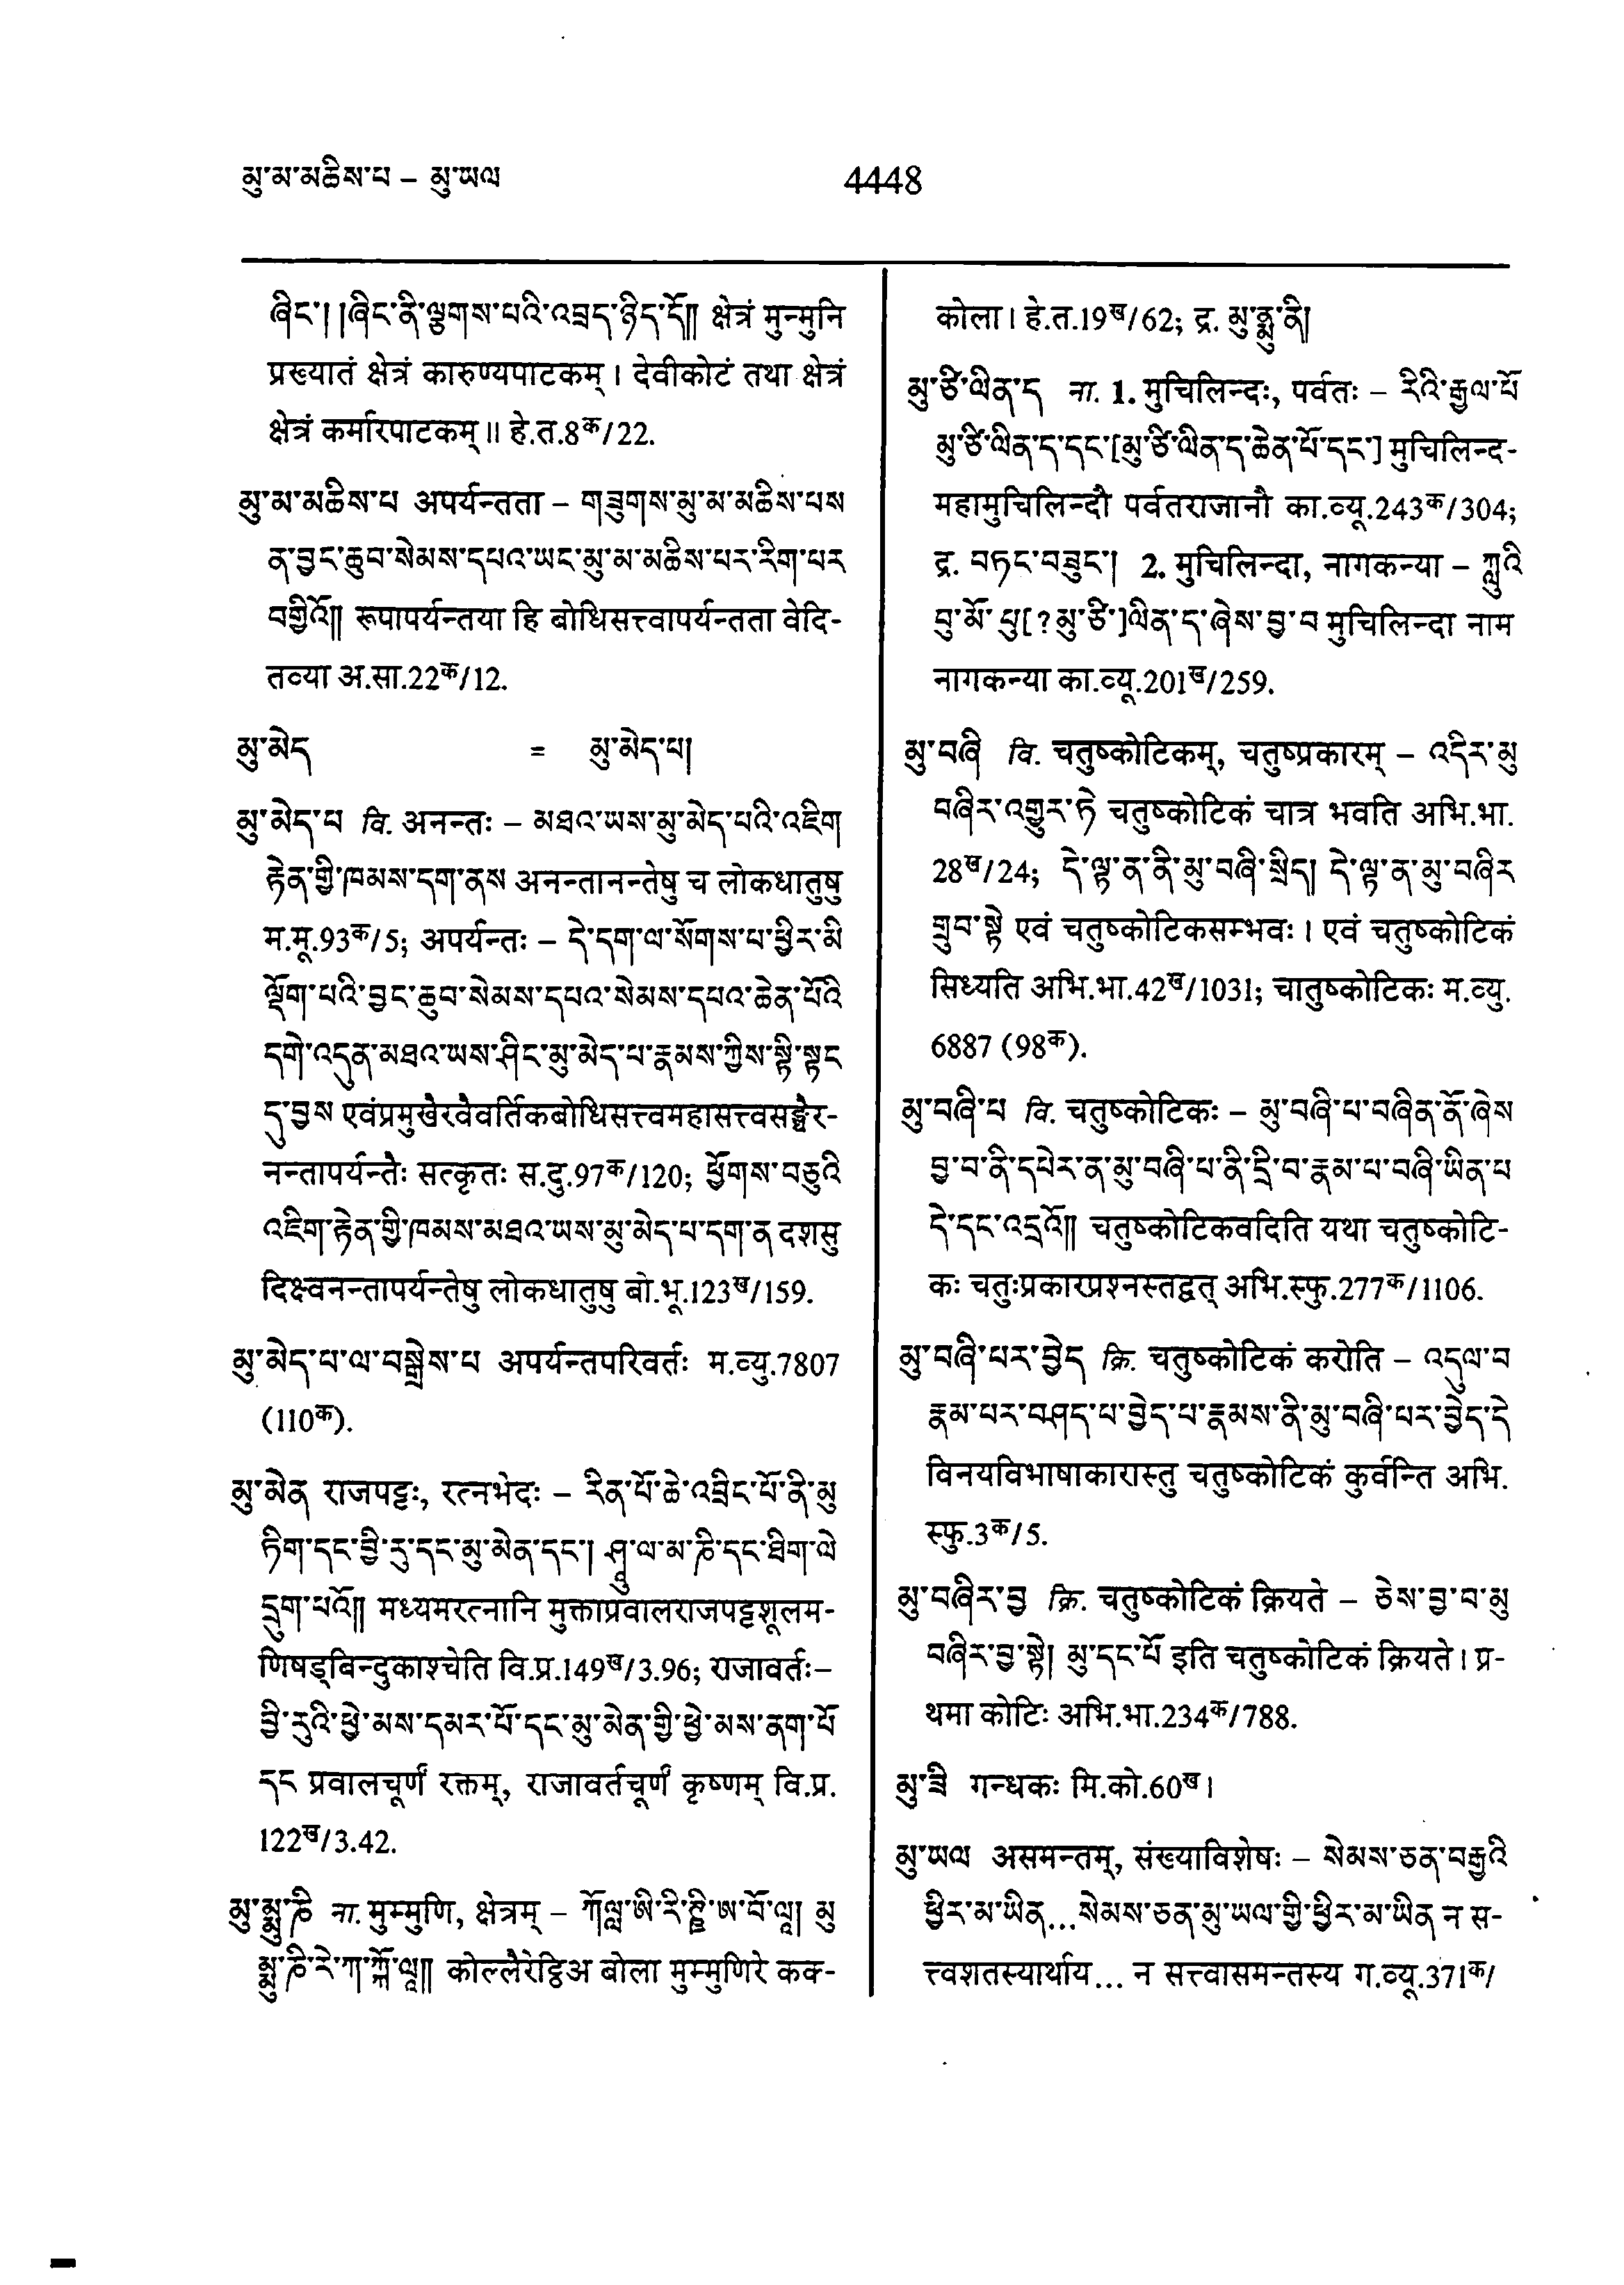 མུ་མ་མཆིས་པ – མུ་ཡལ
4448
ཞིང་། །ཞིང་ནི་ལྕགས་པའི་འབྲད་ཉིད་དོ།། क्षेत्रं मुन्मुनि
प्रख्यातं क्षेत्रं कारुण्यपाटकम् । देवीकोटं तथा क्षेत्रं
क्षेत्रं कर्मारपाटकम् ॥ हे.त.8क/22.
མུ་མ་མཆིས་པ अपर्यन्तता – གཟུགས་མུ་མ་མཆིས་པས
ན་བྱང་ཆུབ་སེམས་དཔའ་ཡང་མུ་མ་མཆིས་པར་རིག་པར
བགྱིའོ།། रूपापर्यन्तया हि बोधिसत्त्वापर्यन्तता वेदि-
तव्या अ.सा.22क/12.
མུ་མེད = མུ་མེད་པ།
མུ་མེད་པ वि. अनन्तः – མཐའ་ཡས་མུ་མེད་པའི་འཇིག
རྟེན་གྱི་ཁམས་དག་ནས अनन्तानन्तेषु च लोकधातुषु
म.मू.93क/5; अपर्यन्तः – དེ་དག་ལ་སོགས་པ་ཕྱིར་མི
ལྡོག་པའི་བྱང་ཆུབ་སེམས་དཔའ་སེམས་དཔའ་ཆེན་པོའི
དགེ་འདུན་མཐའ་ཡས་ཤིང་མུ་མེད་པ་རྣམས་ཀྱིས་སྟི་སྟང
དུ་བྱས एवंप्रमुखैरवैवर्तिकबोधिसत्त्वमहासत्त्वसङ्घैर-
नन्तापर्यन्तैः सत्कृतः स.दु.97क/120; ཕྱོགས་བཅུའི
འཇིག་རྟེན་གྱི་ཁམས་མཐའ་ཡས་མུ་མེད་པ་དག་ན दशसु
दिक्ष्वनन्तापर्यन्तेषु लोकधातुषु बो.भू.123ख/159.
མུ་མེད་པ་ལ་བསྒྲེས་པ अपर्यन्तपरिवर्तः म.व्यु.7807
(110क).
མུ་མེན राजपट्टः, रत्नभेदः – རིན་པོ་ཆེ་འབྲིང་པོ་ནི་མུ
ཏིག་དང་བྱི་རུ་དང་མུ་མེན་དང་། ཤཱུ་ལ་མ་ཎི་དང་ཐིག་ལེ
དྲུག་པའོ།། मध्यमरत्नानि मुक्ताप्रवालराजपट्टशूलम-
णिषड्बिन्दुकाश्चेति वि.प्र.149ख/3.96; राजावर्तः–
བྱི་རུའི་ཕྱེ་མས་དམར་པོ་དང་མུ་མེན་གྱི་ཕྱེ་མས་ནག་པོ
དང प्रवालचूर्णं रक्तम्, राजावर्तचूर्णं कृष्णम् वि.प्र.
122ख/3.42.
མུ་མྨུ་ཎི ना. मुम्मुणि, क्षेत्रम् – ཀོལླ་ཨི་རི་ཊྛི་ཨ་བོ་ལཱ། མུ
མྨུ་ཎི་རེ་ཀ་ཀྐོ་ལཱ།། कोल्लैरेट्ठिअ बोला मुम्मुणिरे कक्-
कोला । हे.त.19ख/62; द्र. མུ་ནྨུ་ནི།
མུ་ཙི་ལིན་ད ना. 1. मुचिलिन्दः, पर्वतः – རིའི་རྒྱལ་པོ
མུ་ཙི་ལིན་ད་དང་[མུ་ཙི་ལིན་ད་ཆེན་པོ་དང་] मुचिलिन्द-
महामुचिलिन्दौ पर्वतराजानौ का.व्यू.243क/304;
द्र. བཏང་བཟུང་། 2. मुचिलिन्दा, नागकन्या – ཀླུའི
བུ་མོ་ པུ[?མུ་ཙི་]ལིན་ད་ཞེས་བྱ་བ मुचिलिन्दा नाम
नागकन्या का.व्यू.201ख/259.
མུ་བཞི वि. चतुष्कोटिकम्, चतुष्प्रकारम् – འདིར་མུ
བཞིར་འགྱུར་ཏེ चतुष्कोटिकं चात्र भवति अभि.भा.
28ख/24; དེ་ལྟ་ན་ནི་མུ་བཞི་སྲིད། དེ་ལྟ་ན་མུ་བཞིར
གྲུབ་སྟེ एवं चतुष्कोटिकसम्भवः । एवं चतुष्कोटिकं
सिध्यति अभि.भा.42ख/1031; चातुष्कोटिकः म.व्यु.
6887 (98क).
མུ་བཞི་པ वि. चतुष्कोटिकः – མུ་བཞི་པ་བཞིན་ནོ་ཞེས
བྱ་བ་ནི་དཔེར་ན་མུ་བཞི་པ་ནི་དྲི་བ་རྣམ་པ་བཞི་ཡིན་པ
དེ་དང་འདྲའོ།། चतुष्कोटिकवदिति यथा चतुष्कोटि-
कः चतुःप्रकारप्रश्नस्तद्वत् अभि.स्फु.277क/1106.
མུ་བཞི་པར་བྱེད क्रि. चतुष्कोटिकं करोति – འདུལ་བ
རྣམ་པར་བཤད་པ་བྱེད་པ་རྣམས་ནི་མུ་བཞི་པར་བྱེད་དེ
विनयविभाषाकारास्तु चतुष्कोटिकं कुर्वन्ति अभि.
स्फु.3क/5.
མུ་བཞིར་བྱ क्रि. चतुष्कोटिकं क्रियते – ཅེས་བྱ་བ་མུ
བཞིར་བྱ་སྟེ། མུ་དང་པོ इति चतुष्कोटिकं क्रियते । प्र-
थमा कोटिः अभि.भा.234क/788.
མུ་ཟི गन्धकः मि.को.60ख ।
མུ་ཡལ असमन्तम्, संख्याविशेषः – སེམས་ཅན་བརྒྱའི
ཕྱིར་མ་ཡིན...སེམས་ཅན་མུ་ཡལ་གྱི་ཕྱིར་མ་ཡིན न स-
त्त्वशतस्यार्थाय... न सत्त्वासमन्तस्य ग.व्यू.371क/